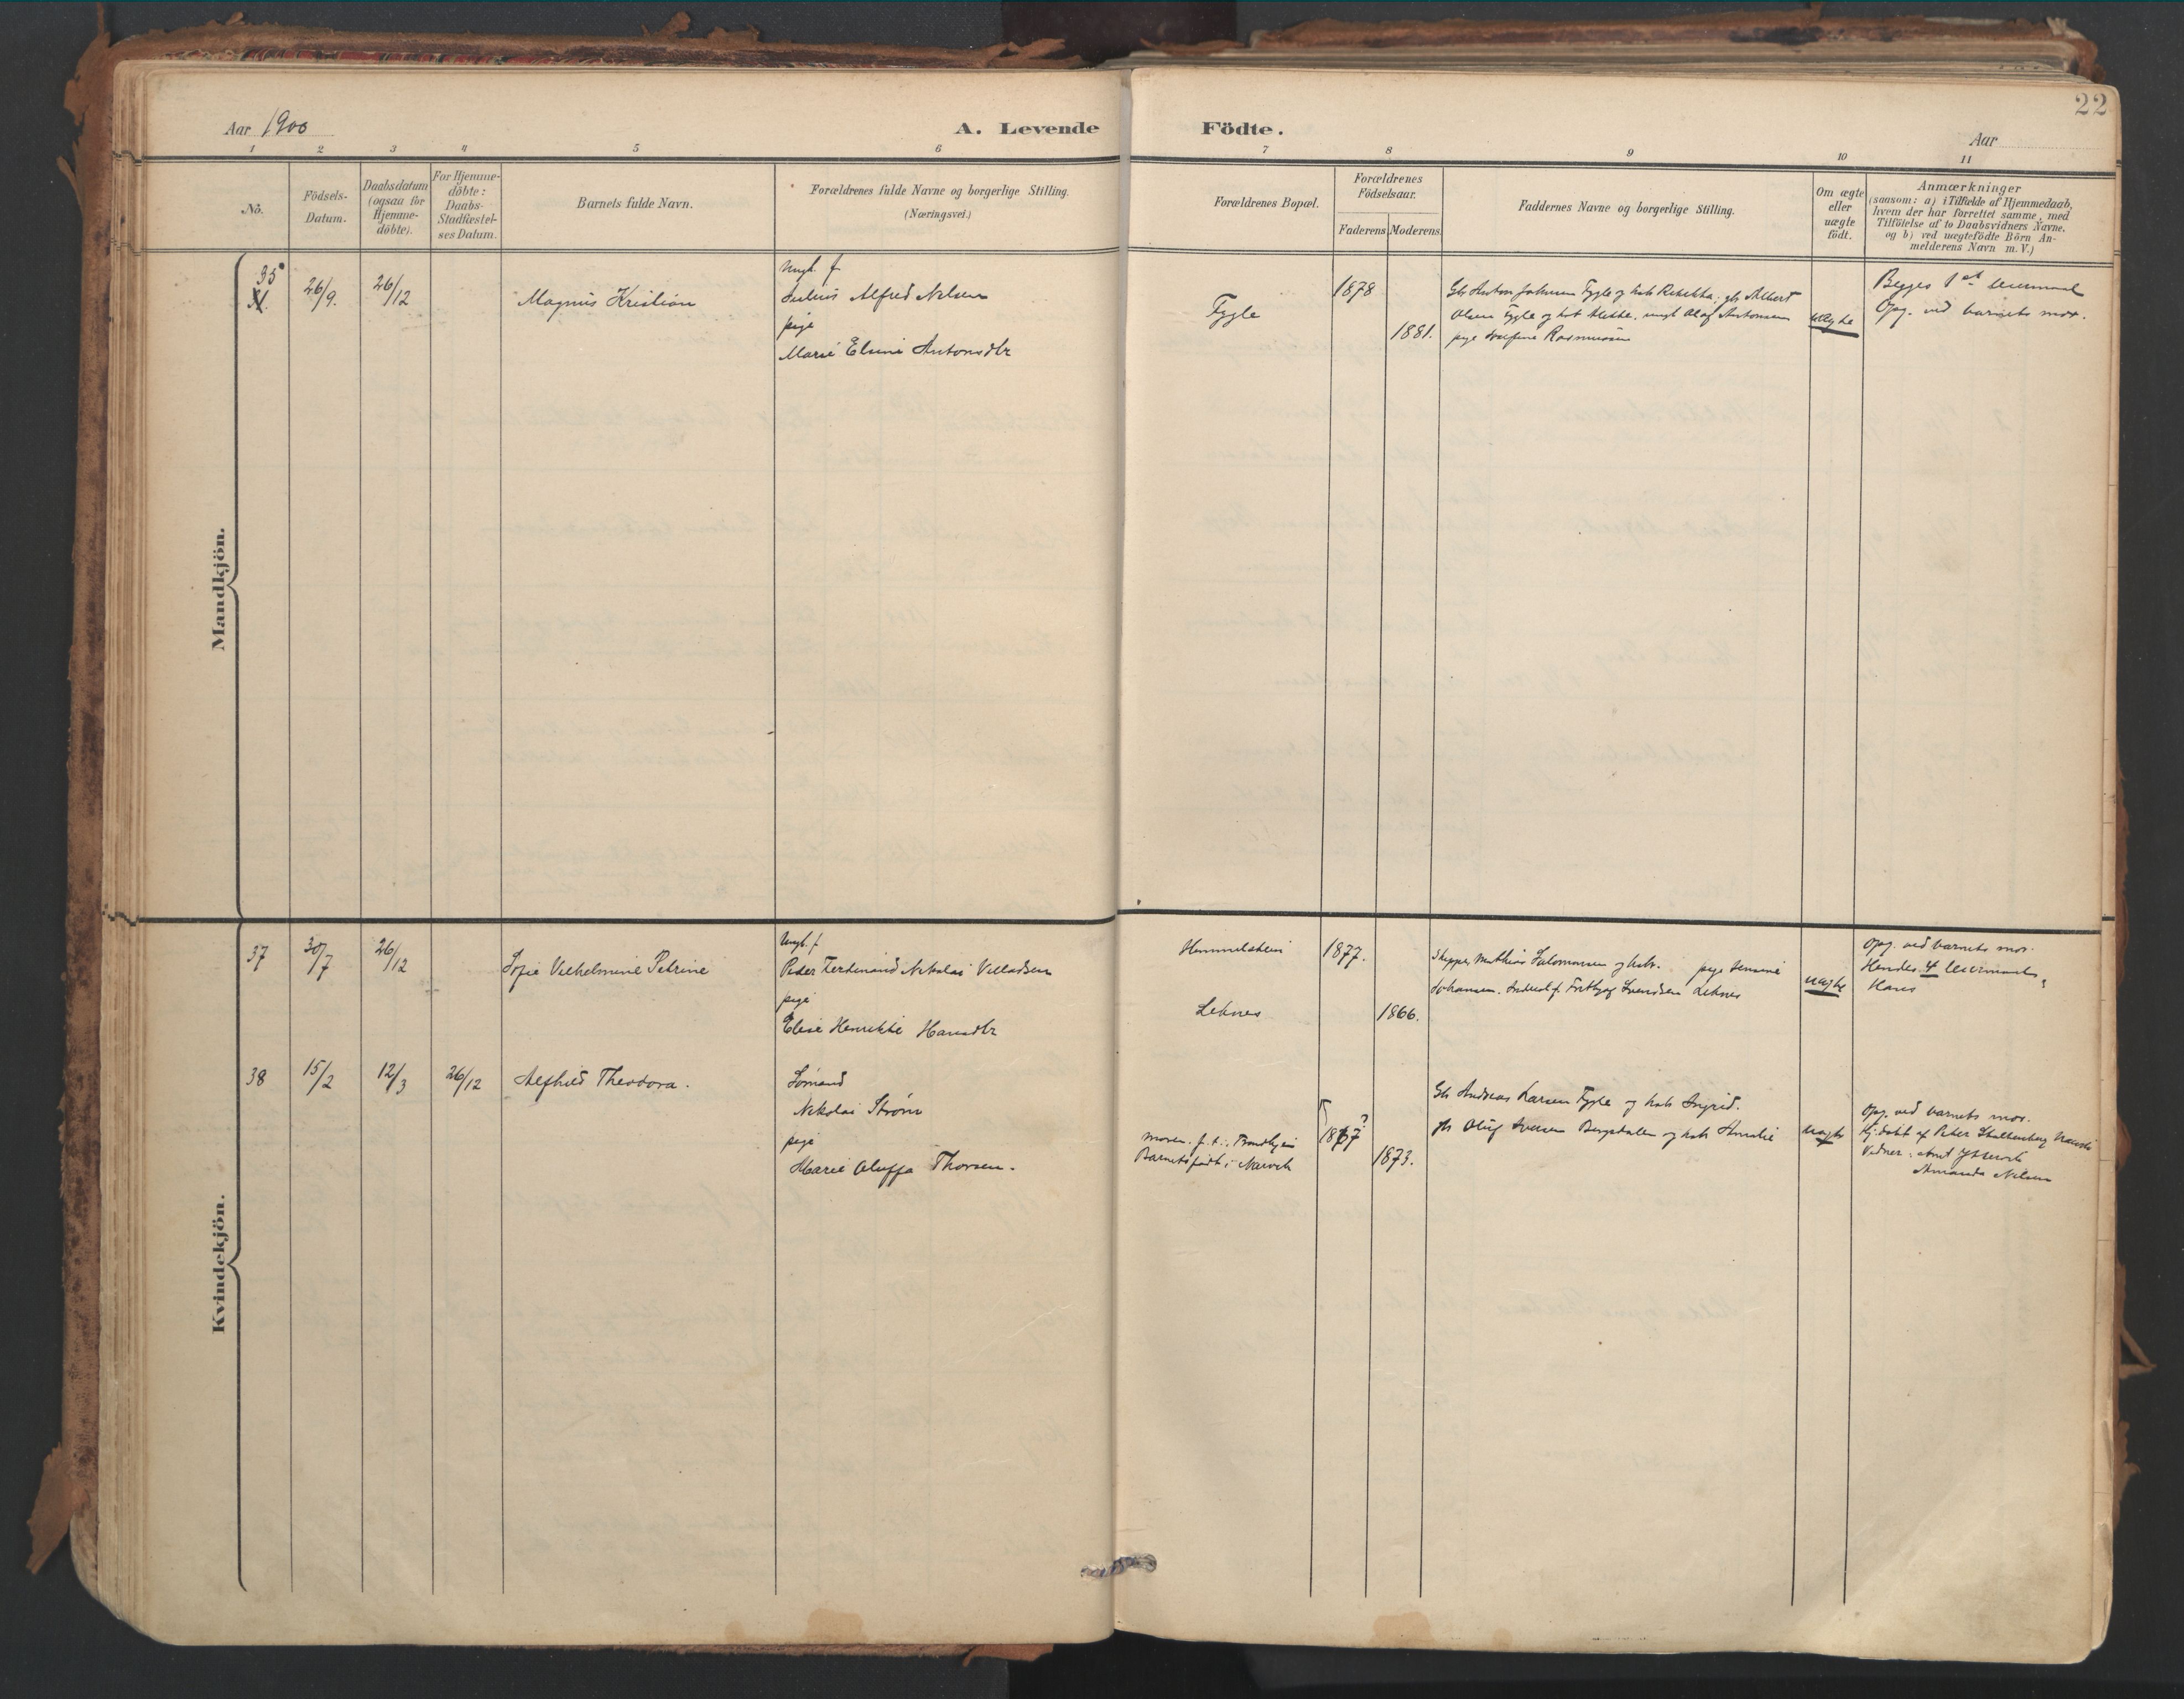 22
Aar 1900
A. Levende Födte.
Aar
1 2 3 4 5 6 7 8 9 10 11
No.
Födsels-
Datum.
Daabsdatum
(ogsaa for
Hjemme-
döbte).
For Hjemme-
döbte:
Daabs-
Stadfæstel-
ses Datum.
Barnets fulde Navn.
Forældrenes fulde Navne og borgerlige Stilling.
(Næringsvei.)
Forældrenes Bopæl.
Forældrenes
Födselsaar.
Faderens
Moderens.
Faddernes Navne og borgerlige Stilling.
Om ægte
eller
uægte
födt.
Anmærkninger
(saasom: a) i Tilfælde af Hjemmedaab,
hvem der har forrettet samme, med
Tilföielse af to Daabsvidners Navne,
og b) ved uægtefödte Börn An-
melderens Navn m. V.)
Mandkjön.
35
26/9.
26/12
Magnus Kristian
Ungk. f.
Julius Alfred Nilsen
pige
Marie Eline Antonsdtr
Fygle
1878
1881.
Gb Anton Johnsen Fygle og kob Rebekka, gb Albert
Olsen Fygle og kob Mette, ungk Olaf Antonsen
pige Josefine Rasmussen
uægte
Begges 1st leiermaal
Opg. ved barnets mor.
Kvindekjön.
37
30/7
26/12
Sofie Vilhelmine Petrine
Ungk. f.
Peder Ferdinand Nikolai Villadsen
pige
Elise Henrikke Hansdtr
Himmelstein
Leknes
1877.
1866.
Skipper Mathias Salomonsen og kob. pige Jensine
Johansen. Inderst f. Fritjog Svendsen Leknes
uægte
Opg. ved barnets mor.
Hendes 4 leiermaal,
Hans
38
15/2
12/3
26/12
Alfhild Theodora.
Sömand
Nikolai Ström
pige
Marie Oluffa Thorsen.
moren f. t. i Trondhjem
Barnet födt i Narvik
1867?
1873.
Gb Andreas Larsen Fygle og kob Ingrid.
gb Oluf Iversen Bergsdalen og kob Amalie
uægte
Opg. ved barnets mor.
Hj. döbt af Peter Stoltenberg Narvik
Vidner:
Amanda Nilsen